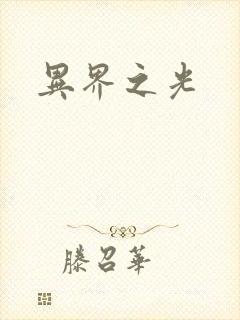 異界之光
滕召華